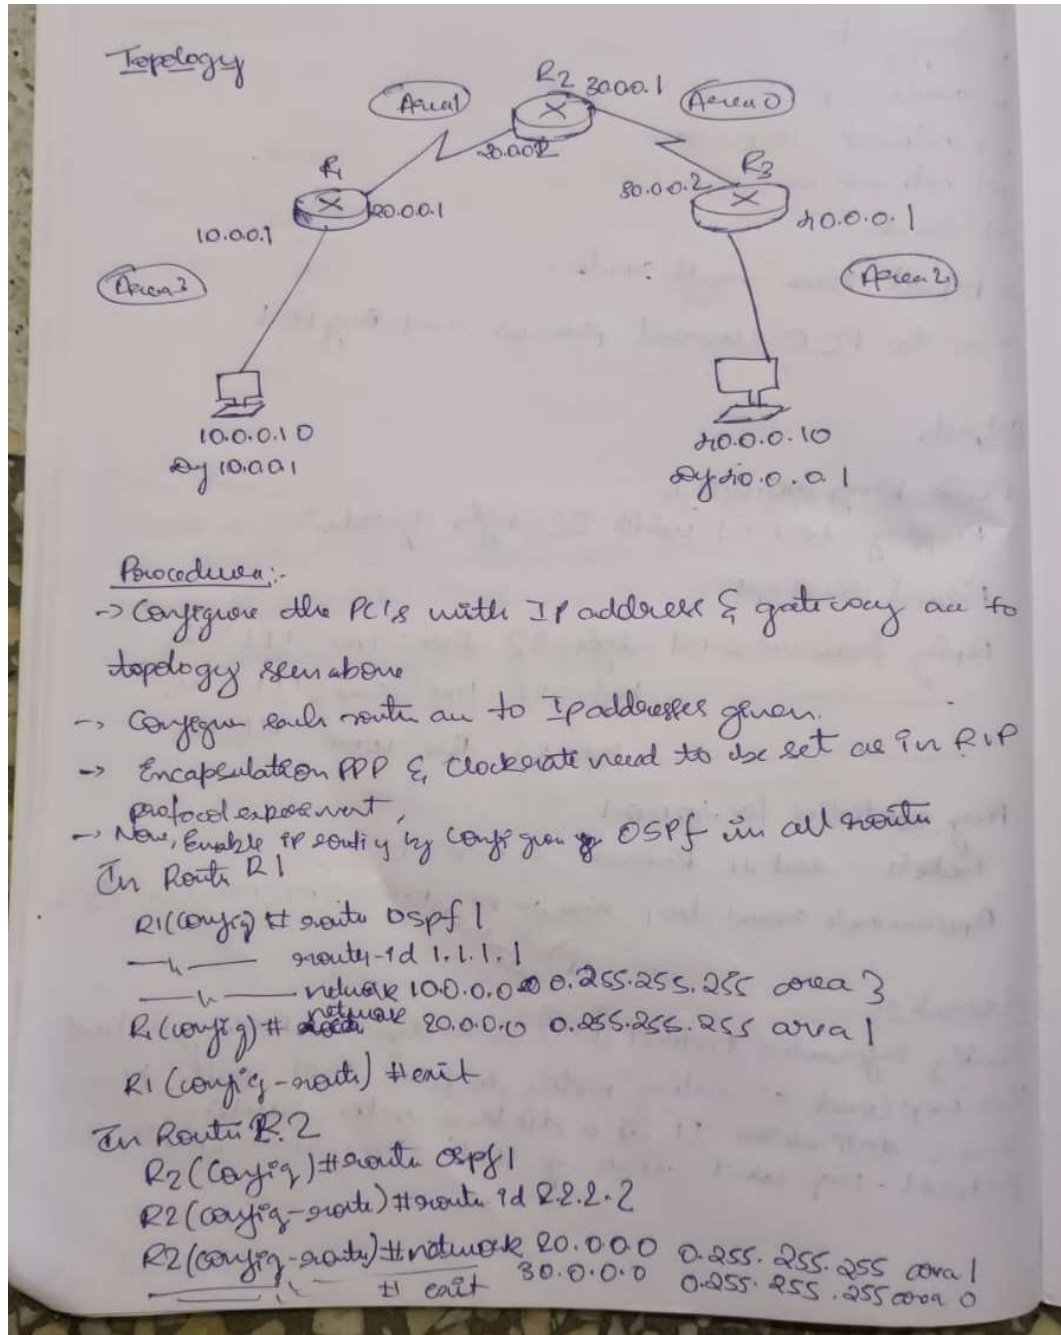 Topology
R2 30.0.0.1
Area 1
Area 0
20.0.0.2
R1
R3
30.0.0.2
20.0.0.1
40.0.0.1
10.0.0.1
Area 3
Area 2
10.0.0.10
40.0.0.10
10.0.0.1
40.0.0.1
Procedure:-
-> Configure the PC's with IP address & gateway acc to
topology seen above
-> Configure each router acc to Ip addresses given.
-> Encapsulation PPP & Clockrate need to be set as in RIP
protocol experiment,
-> Now, Enable ip routing by configuring OSPF in all router
In Router R1
R1(config)# router ospf 1
router-id 1.1.1.1
network 10.0.0.0 0.255.255.255 area 3
R1(config)# network 20.0.0.0 0.255.255.255 area 1
R1(config-router)#exit
In Router R2
R2(config)#router ospf 1
R2(config-router)#router id 2.2.2.2
R2(config-router)#network 20.0.0.0 0.255.255.255 area 1
30.0.0.0 0.255.255.255 area 0
# exit